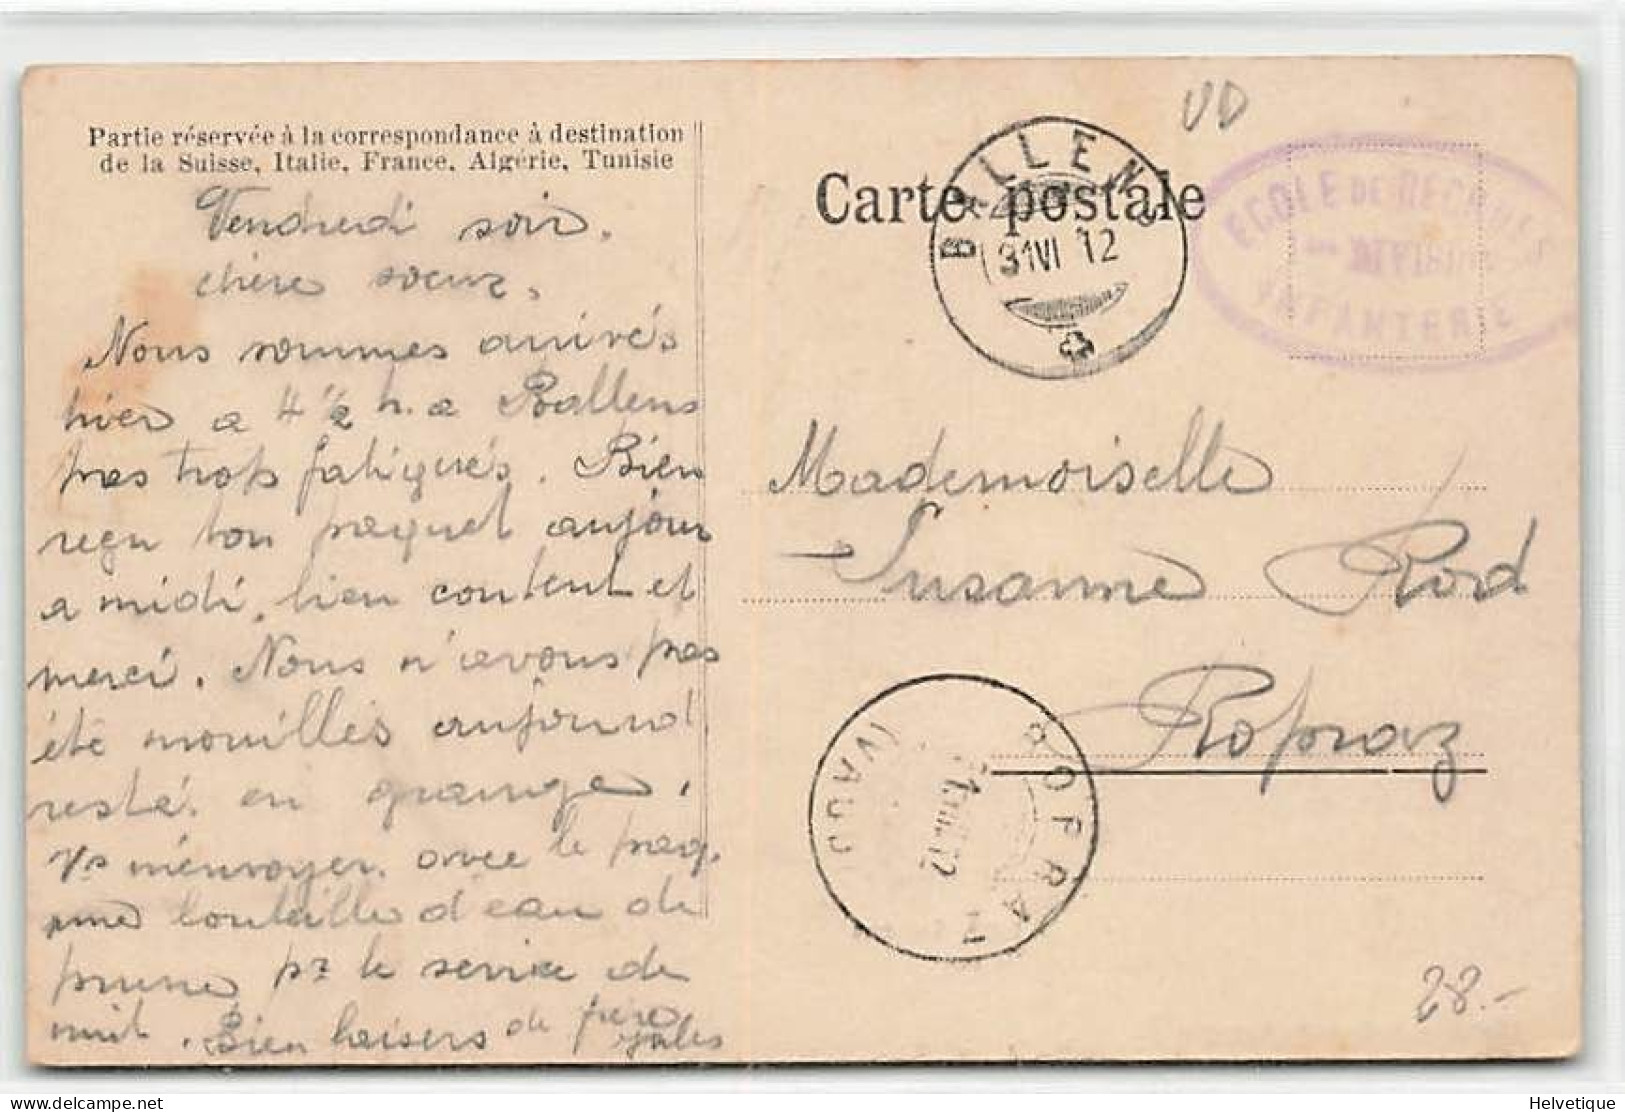 Partie réservée à la correspondance à destination
de la Suisse, Italie, France, Algérie, Tunisie
Vendredi soir.
chère soeur.
Nous sommes arrivés
hier a 4 ½ h. a Ballens
pas trop fatigués. Bien
reçu ton paquet aujour
a midi, bien content et
merci. Nous n'avons pas
été mouillés aujourd
resté en grange.
Vs m'envoyer avec le paq.
une bouteille d'eau de
prune pr le service de
nuit. Bien baisers de frère
Jules
VD
Carte postale
BALLENS
31 VI 12
ECOLE DE RECRUES
DIVISION
INFANTERIE
Mademoiselle
Susanne Rod
Ropraz
ROPRAZ
(VAUD)
12
28.-
delcampe.net
Helvetique